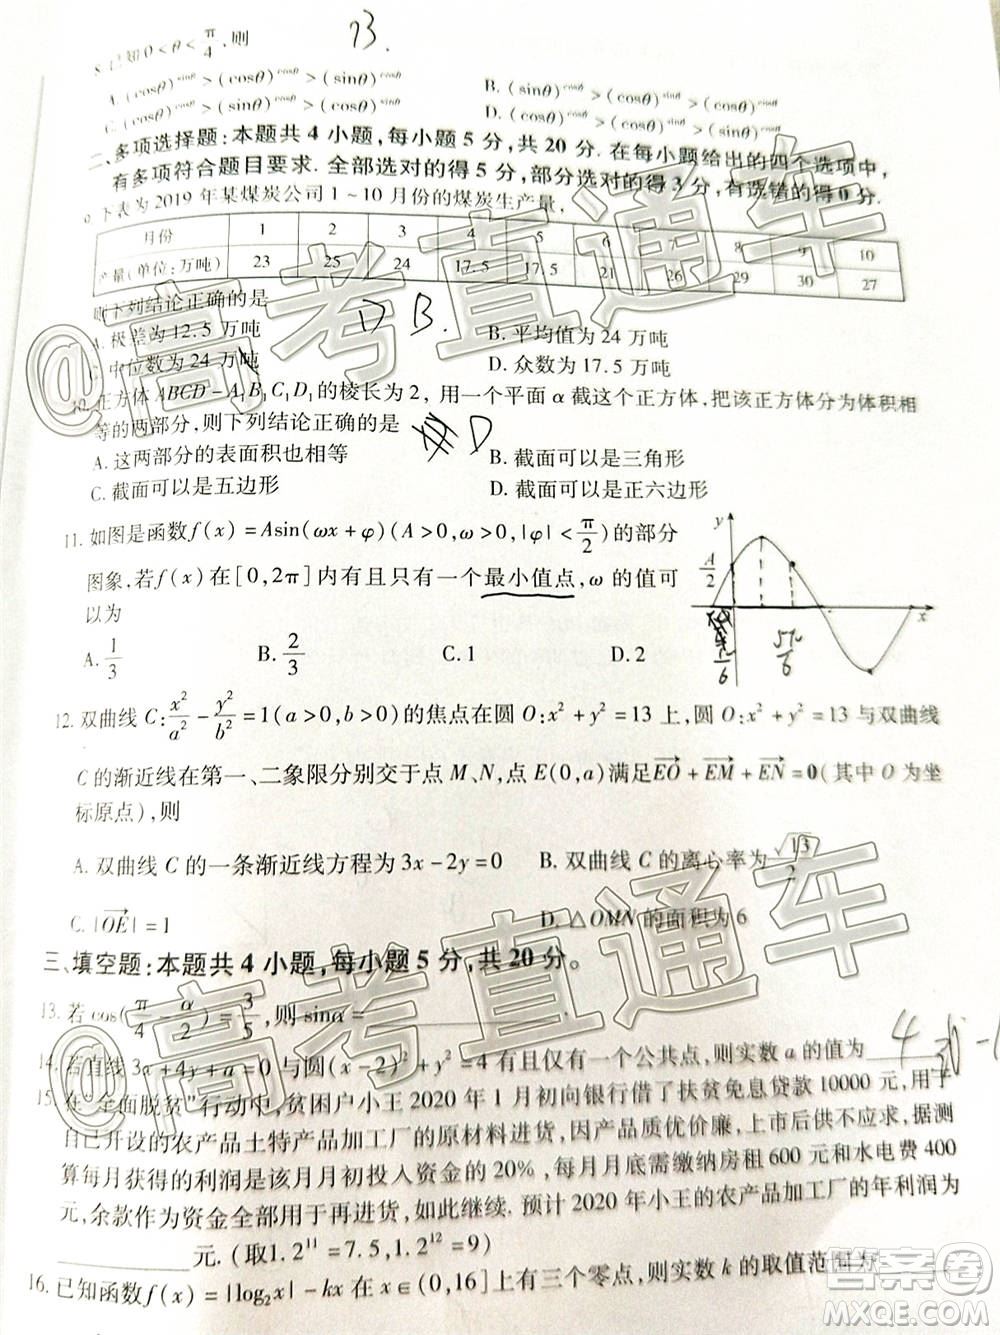 8.已知0<θ<π/4,则
A.(cosθ)^sinθ>(cosθ)^cosθ>(sinθ)^cosθ
B.(sinθ)^cosθ>(cosθ)^cosθ>(cosθ)^sinθ
二、多项选择题:本题共4小题,每小题5分,共20分.在每小题给出的四个选项中
有多项符合题目要求.全部选对的得5分,部分选对的得3分,有选错的得0分.
9.下表为2019年某煤炭公司1~10月份的煤炭生产量,
月份 1 2 3 4 5 6 7 8 9 10
产量(单位:万吨) 23 25 24 17.5 17.5 21 26 29 30 27
则下列结论正确的是
DB.
A.极差为12.5万吨 B.平均值为24万吨
C.中位数为24万吨 D.众数为17.5万吨
10.正方体ABCD-A₁B₁C₁D₁的棱长为2,用一个平面α截这个正方体,把该正方体分为体积相
等的两部分,则下列结论正确的是 D
A.这两部分的表面积也相等 B.截面可以是三角形
C.截面可以是五边形 D.截面可以是正六边形
11.如图是函数f(x)=Asin(ωx+φ)(A>0,ω>0,|φ|<π/2)的部分
图象,若f(x)在[0,2π]内有且只有一个最小值点,ω的值可
以为
A.1/3 B.2/3 C.1 D.2
y
A/2
x
π/6
5π/6
12.双曲线C:x²/a²-y²/b²=1(a>0,b>0)的焦点在圆O:x²+y²=13上,圆O:x²+y²=13与双曲线
C的渐近线在第一、二象限分别交于点M、N,点E(0,a)满足EO+EM+EN=0(其中O为坐
标原点),则
A.双曲线C的一条渐近线方程为3x-2y=0 B.双曲线C的离心率为√13/2
C.|OE|=1 D.△OMN的面积为6
三、填空题:本题共4小题,每小题5分,共20分。
13.若cos(π/4-α/2)=3/5,则sinα=
14.若直线3x+4y+a=0与圆(x-2)²+y²=4有且仅有一个公共点,则实数a的值为
15.在"全面脱贫"行动中,贫困户小王2020年1月初向银行借了扶贫免息贷款10000元,用于
自己开设的农产品土特产品加工厂的原材料进货,因产品质优价廉,上市后供不应求,据测
算每月获得的利润是该月月初投入资金的20%,每月月底需缴纳房租600元和水电费400
元,余款作为资金全部用于再进货,如此继续.预计2020年小王的农产品加工厂的年利润为
元.(取1.2¹¹=7.5,1.2¹²=9)
16.已知函数f(x)=|log₂x|-kx在x∈(0,16]上有三个零点,则实数k的取值范围为
@高考直通车
@高考直通车
答案卷
MXQE.COM